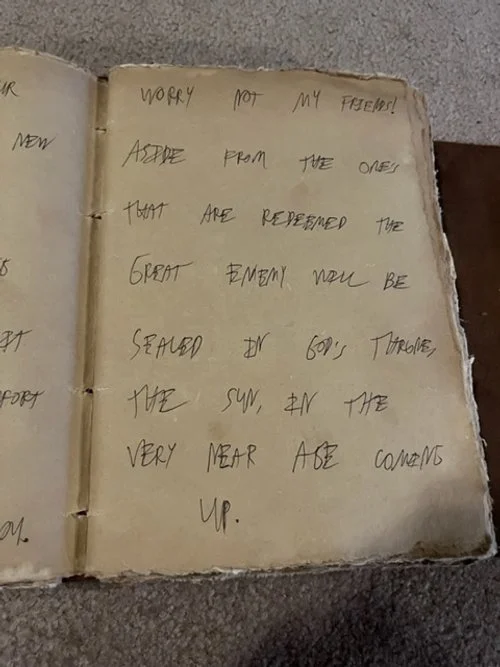 UR
NEW
FORT
WORRY NOT MY FRIENDS!
ASIDE FROM THE ONES
THAT ARE REDEEMED THE
GREAT ENEMY WILL BE
SEALED IN GOD'S THRONE,
THE SUN, IN THE
VERY NEAR AGE COMING
UP.